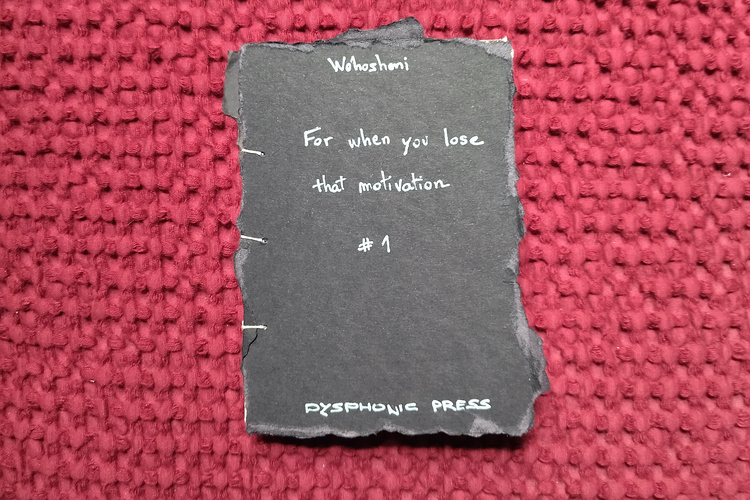 Wohosheni
For when you lose
that motivation
# 1
DYSPHONIC PRESS